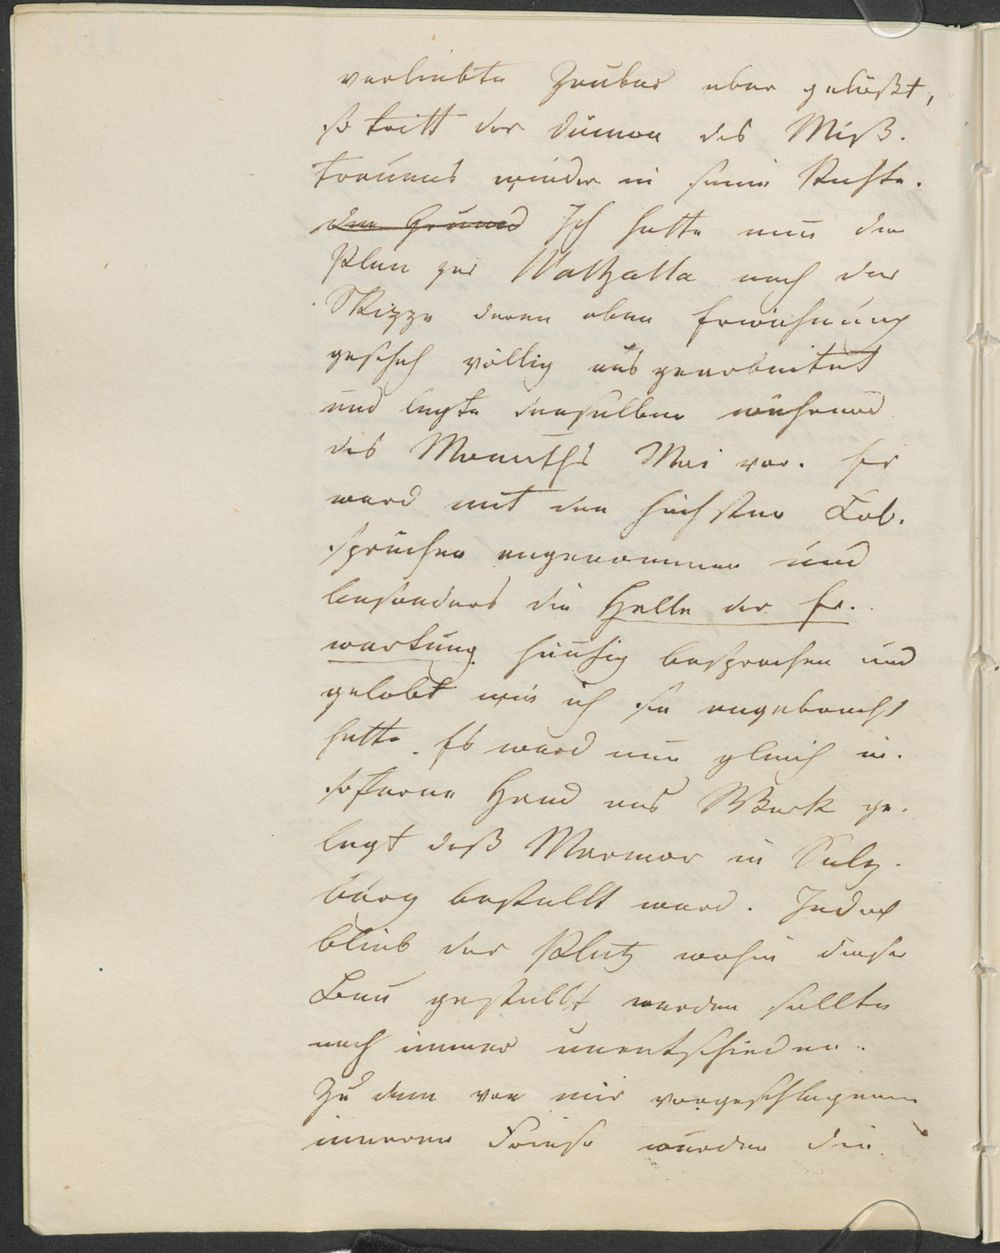 verliebte Zauber aber gelößt,
so tritt der Dämon des Miß-
trauens wieder in seine Rechte.
den Grund Ich hatte nun den
Plan zur Walhalla nach der
Skizze deren oben Erwähnung
geschah völlig ausgearbeitet
und legte denselben während
des Monaths Mai vor. Er
ward mit den höchsten Lob-
sprüchen angenommen und
besonders die Halle der Er-
wartung häufig besprochen und
gelobt wie ich sie angebracht
hatte. Es ward nun gleich in-
soferne Hand ans Werk ge-
legt daß Marmor in Salz-
burg bestellt ward. Jedoch
blieb der Platz wohin dieser
Bau gestellt werden sollte
noch immer unentschieden.
Zu dem von mir vorgeschlagenen
inneren Friese wurden die